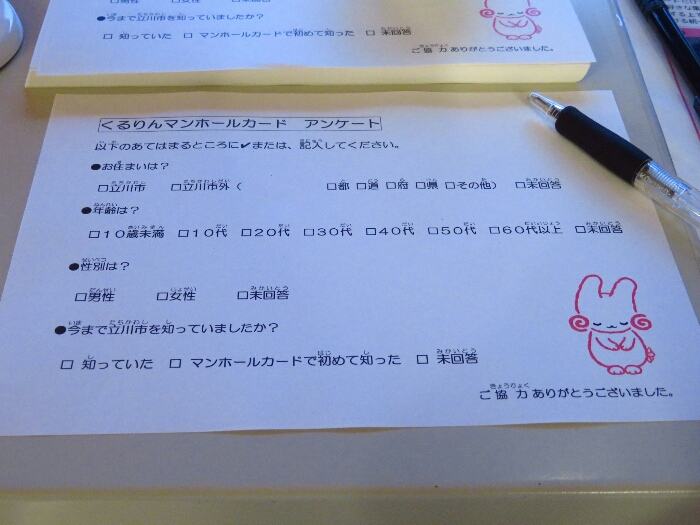 ●今まで立川市を知っていましたか?
□ 知っていた □ マンホールカードで初めて知った □ 未回答
ご協力ありがとうございました。
くるりんマンホールカード アンケート
以下のあてはまるところに✔または、記入してください。
●お住まいは?
□立川市 □立川市外( □都 □道 □府 □県 □その他) □未回答
●年齢は?
□10歳未満 □10代 □20代 □30代 □40代 □50代 □60代以上 □未回答
●性別は?
□男性 □女性 □未回答
●今まで立川市を知っていましたか?
□ 知っていた □ マンホールカードで初めて知った □ 未回答
ご協力ありがとうございました。